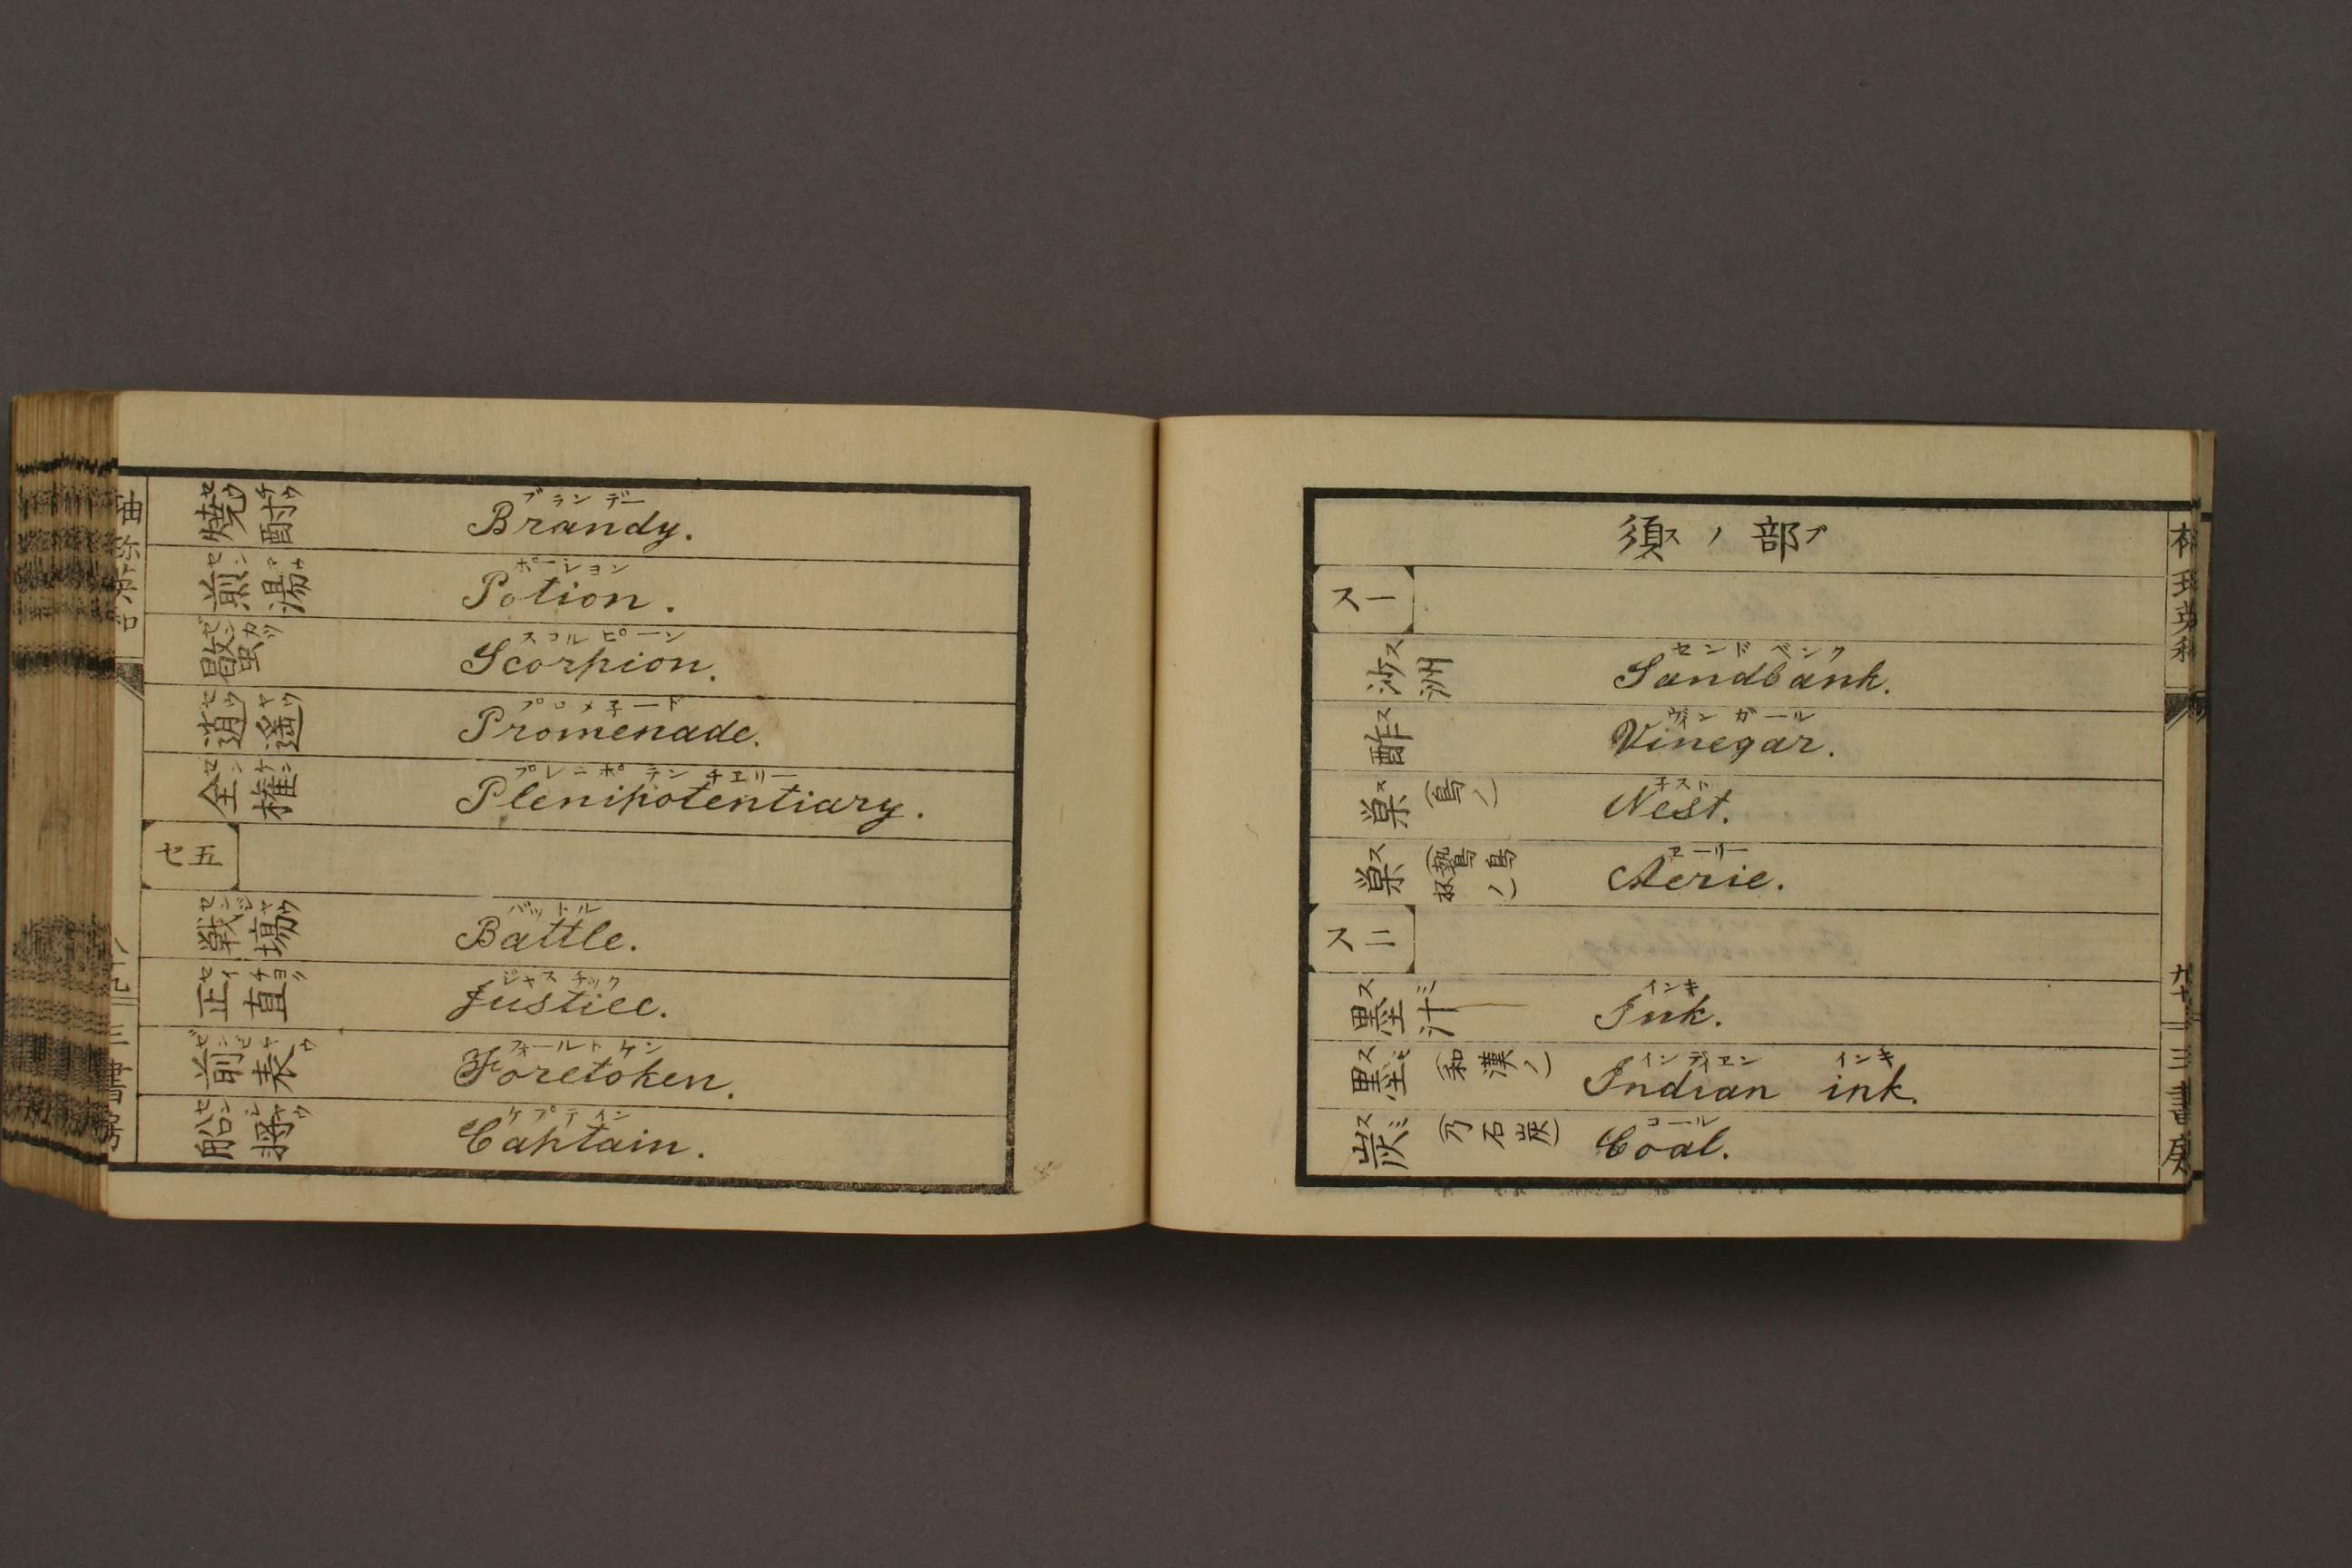 燒酎 セウチウ ブランデー Brandy.
煎湯 ポーション Potion.
蠍 スコルピーン Scorpion.
逍遙 セウヤウ プロメ子ード Promenade.
全權 ゼンケン プレニポテンチエリー Plenipotentiary.
セ五
戰場 センジヤウ バットル Battle.
正直 セイチョク ジャスチック Justice.
前表 ゼンピヤウ フォールトケン Foretoken.
船將 センシヤウ ケプテイン Captain.
須ス ノ 部ブ
ス一
沙洲 ス センドベンク Sandbank.
酢 ス ヴィンガール Vinegar.
巣 ス (鳥ノ) 子スト Nest.
巣 ス (鷙鳥ノ) ヱーリー Aerie.
ス二
墨汁 スミ インキ Ink.
墨 スミ (和漢ノ) インディエン インキ Indian ink.
炭 スミ (乃石炭) コール Coal.
九十
三書房